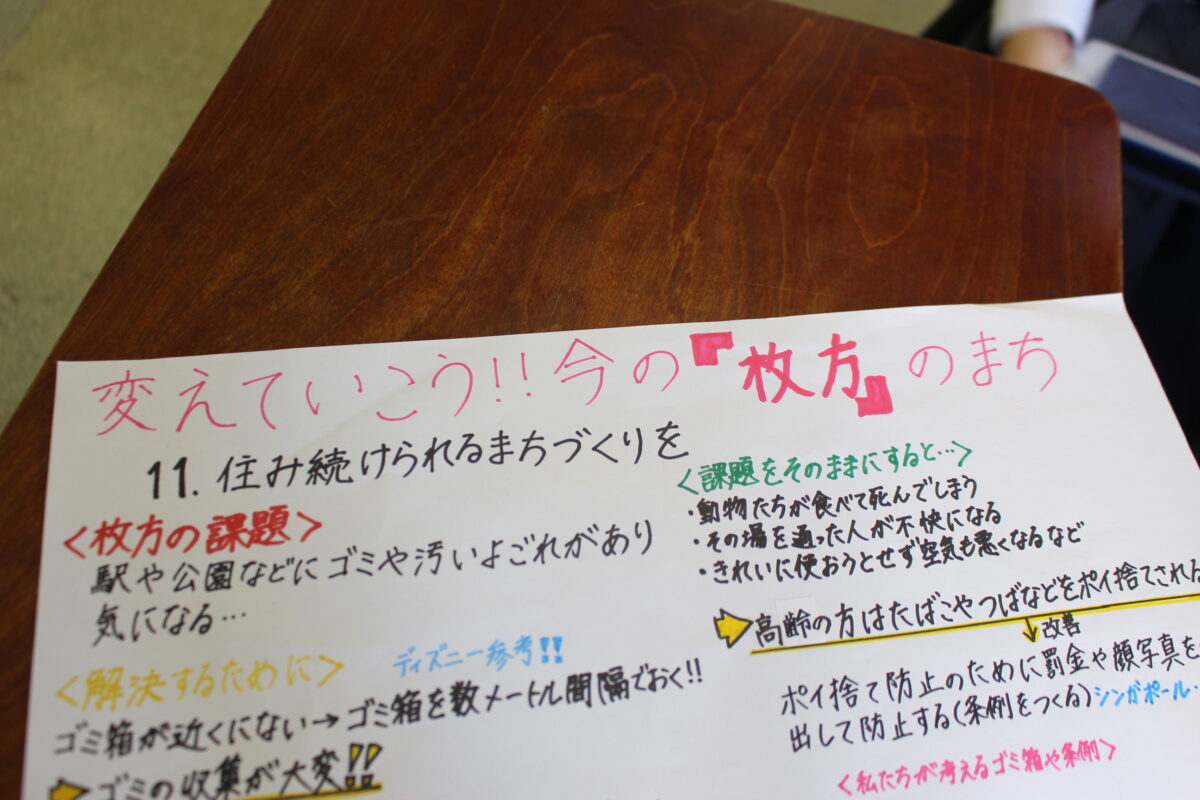 変えていこう!!今の『枚方』のまち
11. 住み続けられるまちづくりを
<枚方の課題>
駅や公園などにゴミや汚いよごれがあり
気になる…
<解決するために>
ディズニー参考!!
ゴミ箱が近くにない→ゴミ箱を数メートル間隔でおく!!
ゴミの収集が大変!!
<課題をそのままにすると…>
・動物たちが食べて死んでしまう
・その場を通った人が不快になる
・きれいに使おうとせず空気も悪くなるなど
高齢の方はたばこやつばなどをポイ捨てされる
改善
ポイ捨て防止のために罰金や顔写真を
出して防止する(条例をつくる)シンガポール
<私たちが考えるゴミ箱や条例>